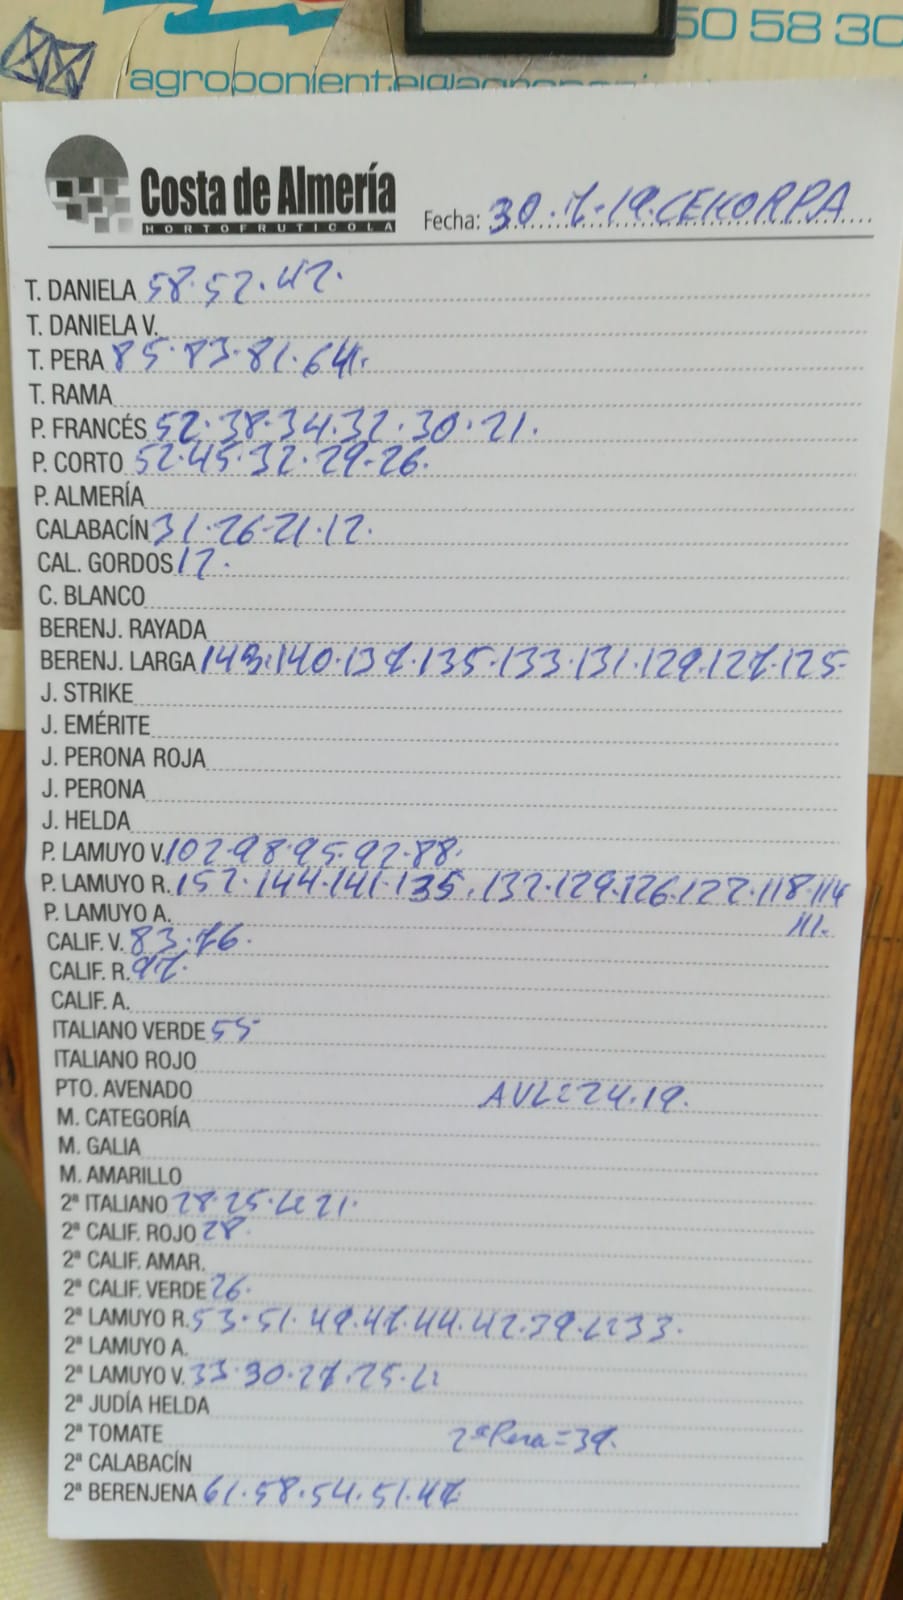 50 58 30
Costa de Almería
HORTOFRUTICOLA
Fecha: 30.7-19.CEHORPA
T. DANIELA 58.52.47.
T. DANIELA V.
T. PERA 85.83.81.64.
T. RAMA
P. FRANCÉS 52.38.34.32.30.21.
P. CORTO 52.45.32.29-26.
P. ALMERÍA
CALABACÍN 31.26-21.12.
CAL. GORDOS 17.
C. BLANCO
BERENJ. RAYADA
BERENJ. LARGA 143.140.137.135.133.131.129.127.125-
J. STRIKE
J. EMÉRITE
J. PERONA ROJA
J. PERONA
J. HELDA
P. LAMUYO V. 102-98.95.92.88.
P. LAMUYO R. 152.144.141.135.132.129.126.122.118.114
P. LAMUYO A. 111.
CALIF. V. 83.76.
CALIF. R. 97.
CALIF. A.
ITALIANO VERDE 55
ITALIANO ROJO
PTO. AVENADO 24.19.
M. CATEGORÍA
M. GALIA
M. AMARILLO
2ª ITALIANO 28.25. 21.
2ª CALIF. ROJO 28
2ª CALIF. AMAR.
2ª CALIF. VERDE 26.
2ª LAMUYO R. 53.51.49.47.44.42.39. 33.
2ª LAMUYO A.
2ª LAMUYO V. 33.30.27.25.
2ª JUDÍA HELDA
2ª TOMATE 2ª Pera=39.
2ª CALABACÍN
2ª BERENJENA 61.58.54.51.47